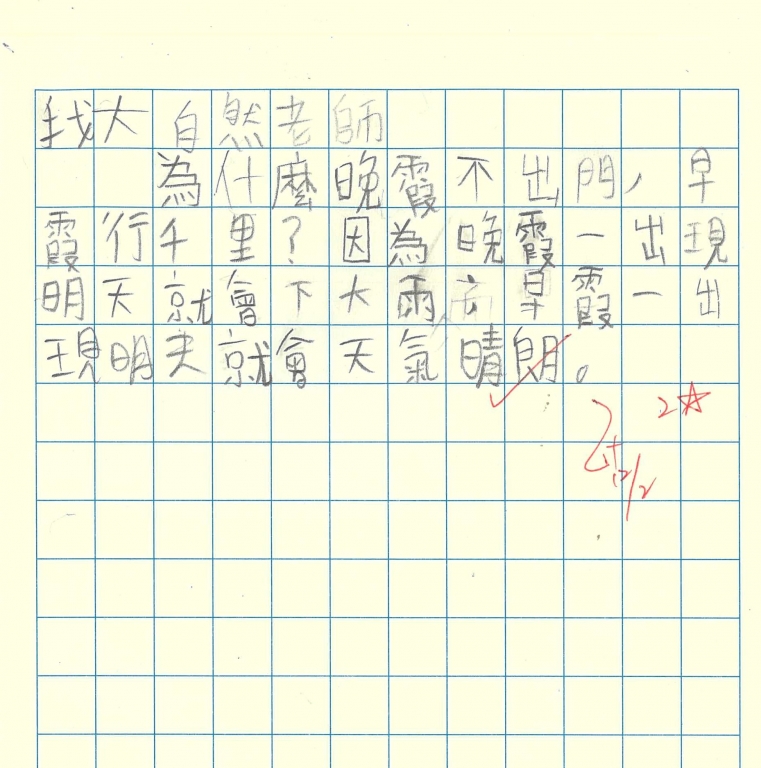 找大自然老師
為什麼晚霞不出門，早
霞行千里？因為晚霞一出現
明天就會下大雨，早霞一出
現明天就會天氣晴朗。
2☆
12/2